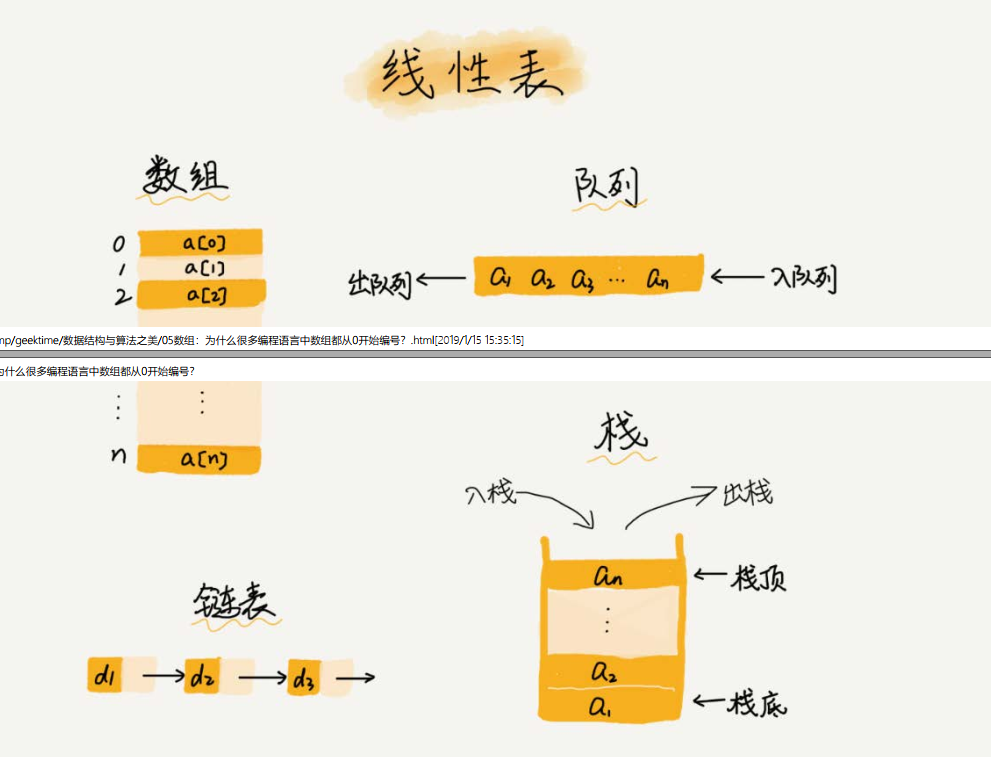 线性表
数组
0 a[0]
1 a[1]
2 a[2]
队列
出队列 a1 a2 a3 ... an 入队列
mp/geektime/数据结构与算法之美/05数组：为什么很多编程语言中数组都从0开始编号？.html[2019/1/15 15:35:15]
为什么很多编程语言中数组都从0开始编号？
⋮ ⋮
n a[n]
栈
入栈 出栈
an 栈顶
⋮
a2
a1 栈底
链表
d1 d2 d3